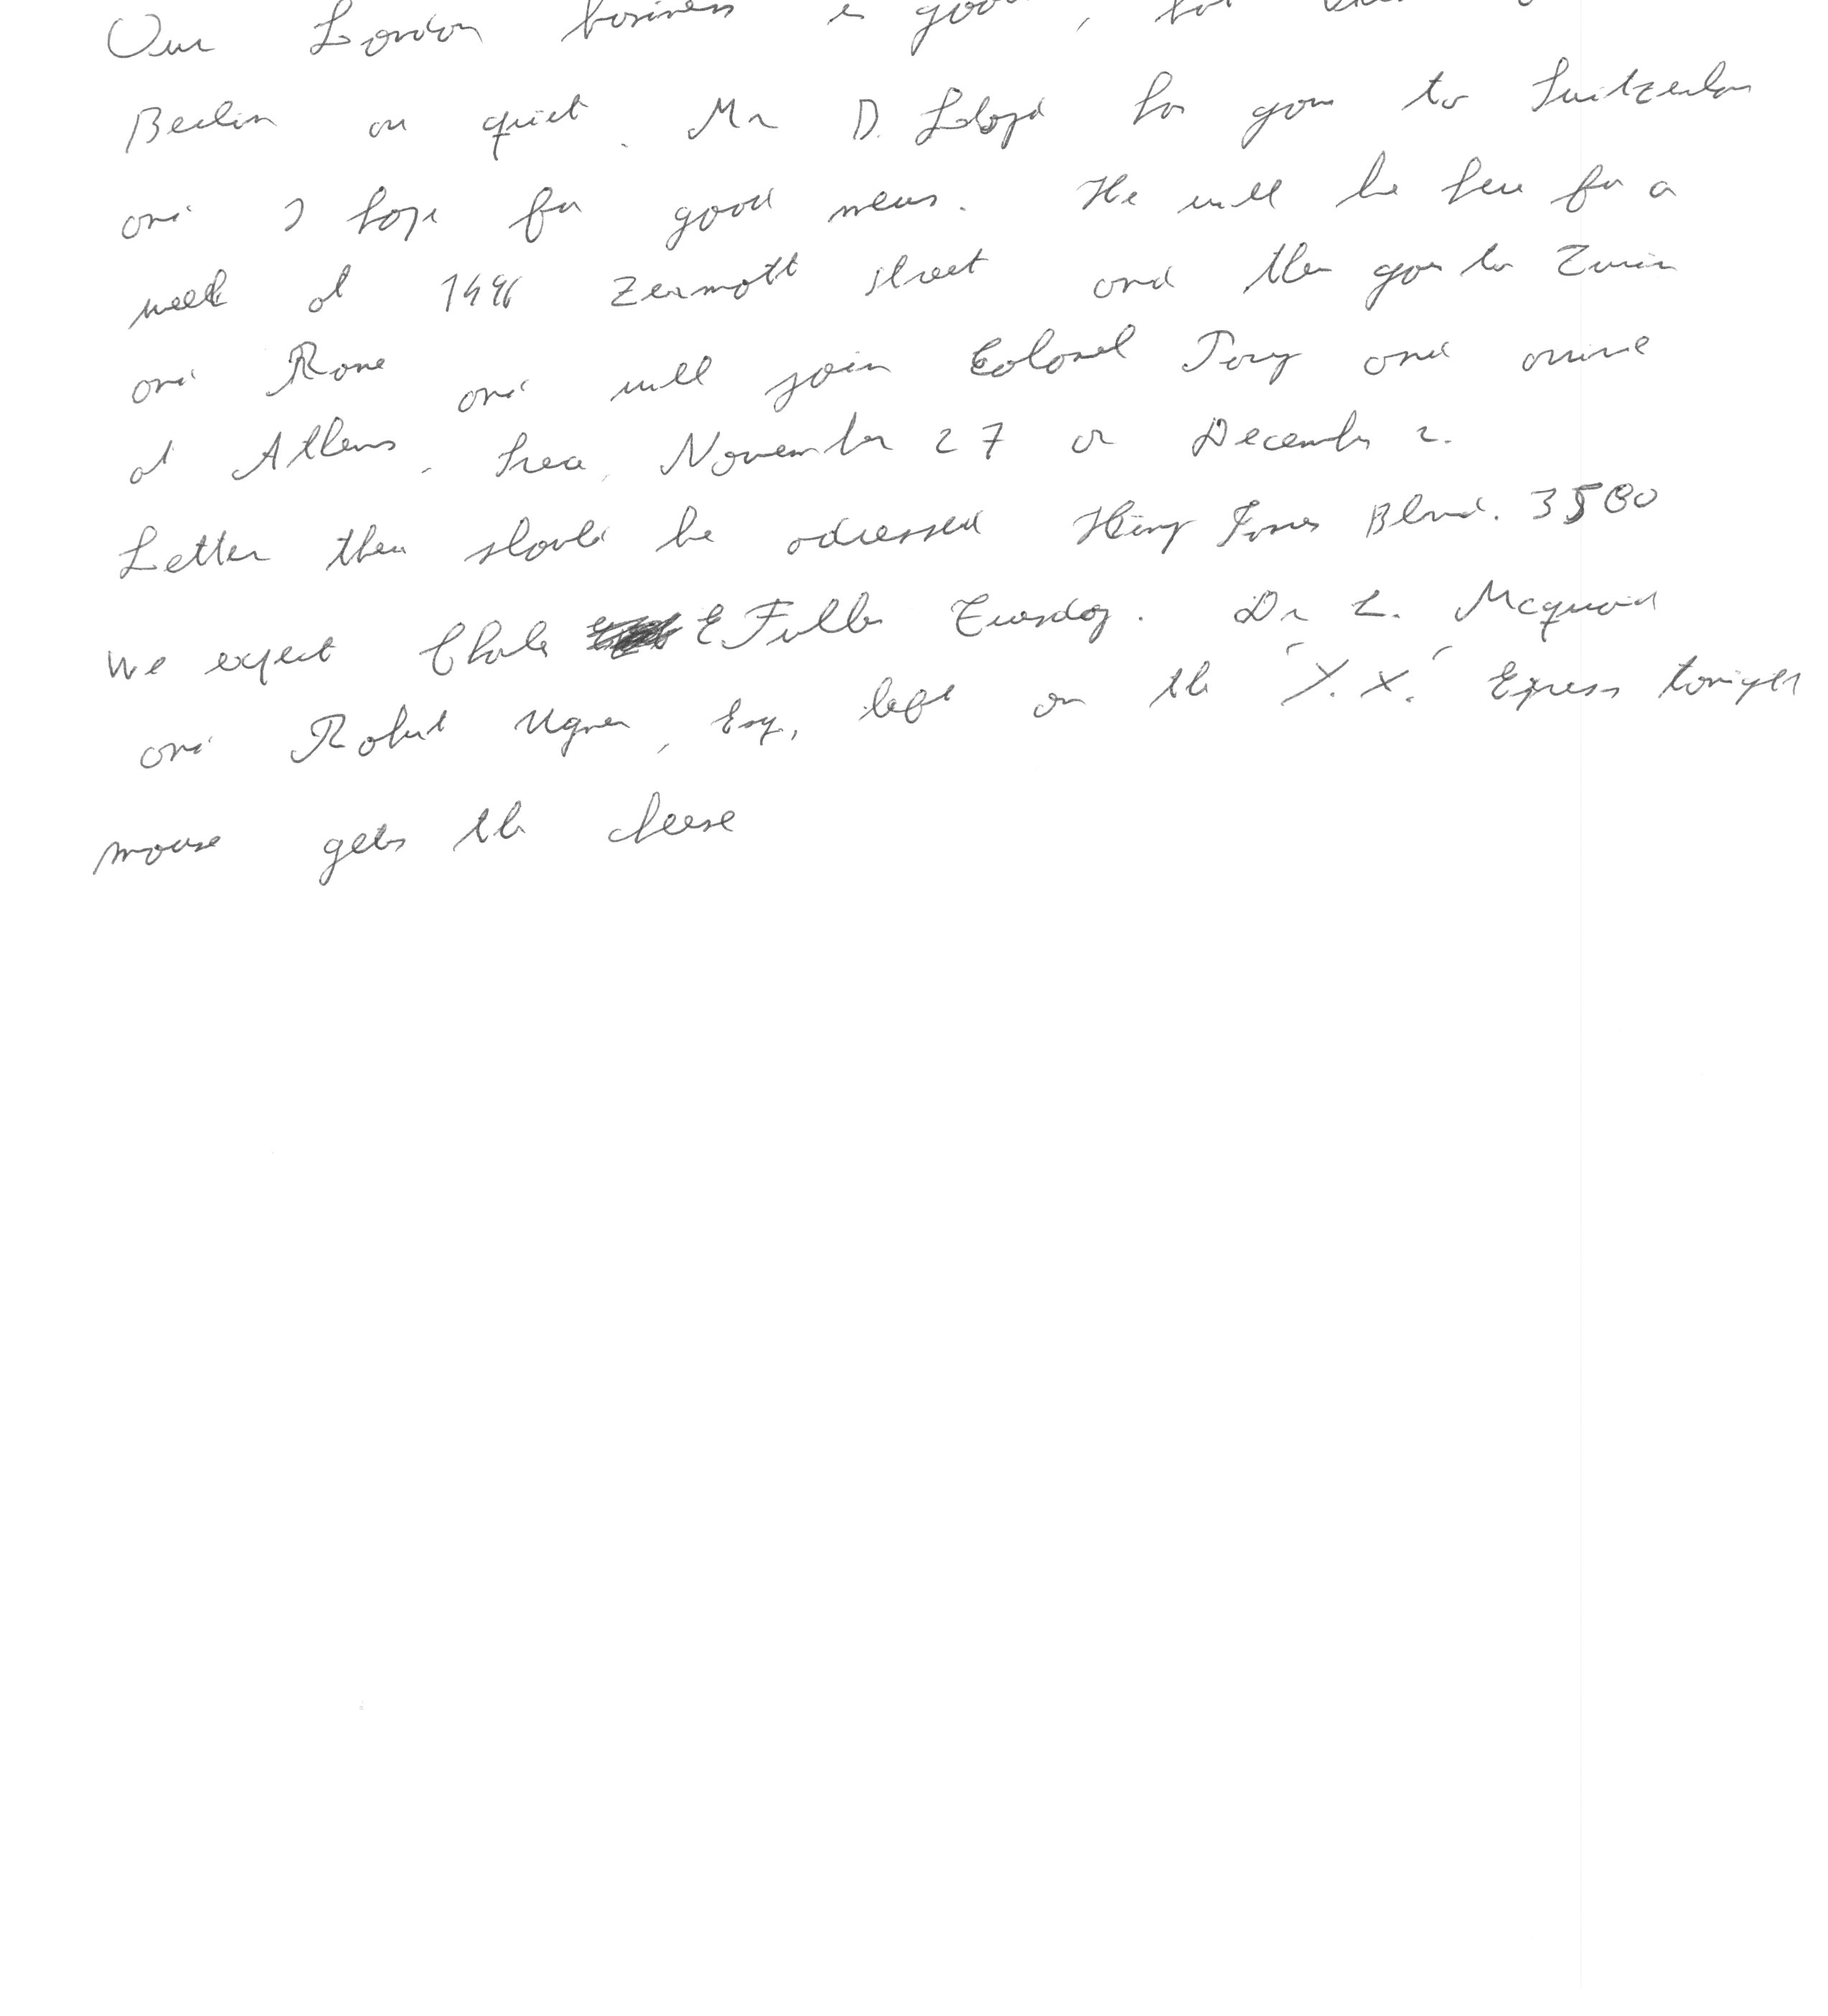 Our London business is good, but
Berlin are quiet. Mr D. Lloyd has gone to Switzerlan
and I hope for good news. He will be here for a
week at 1496 Zermott street and then goes to Turin
and Rome and will join Colonel Perry and arrive
at Athens, Greece, November 27 or December 2.
Letter there should be adressed King James Blvd. 3580
We expect Charle E Fuller Tuesday. Dr L. Mcquaid
and Robert Unger, Esq., left on the "Y.X." Express tonight
mouse gets the cheese